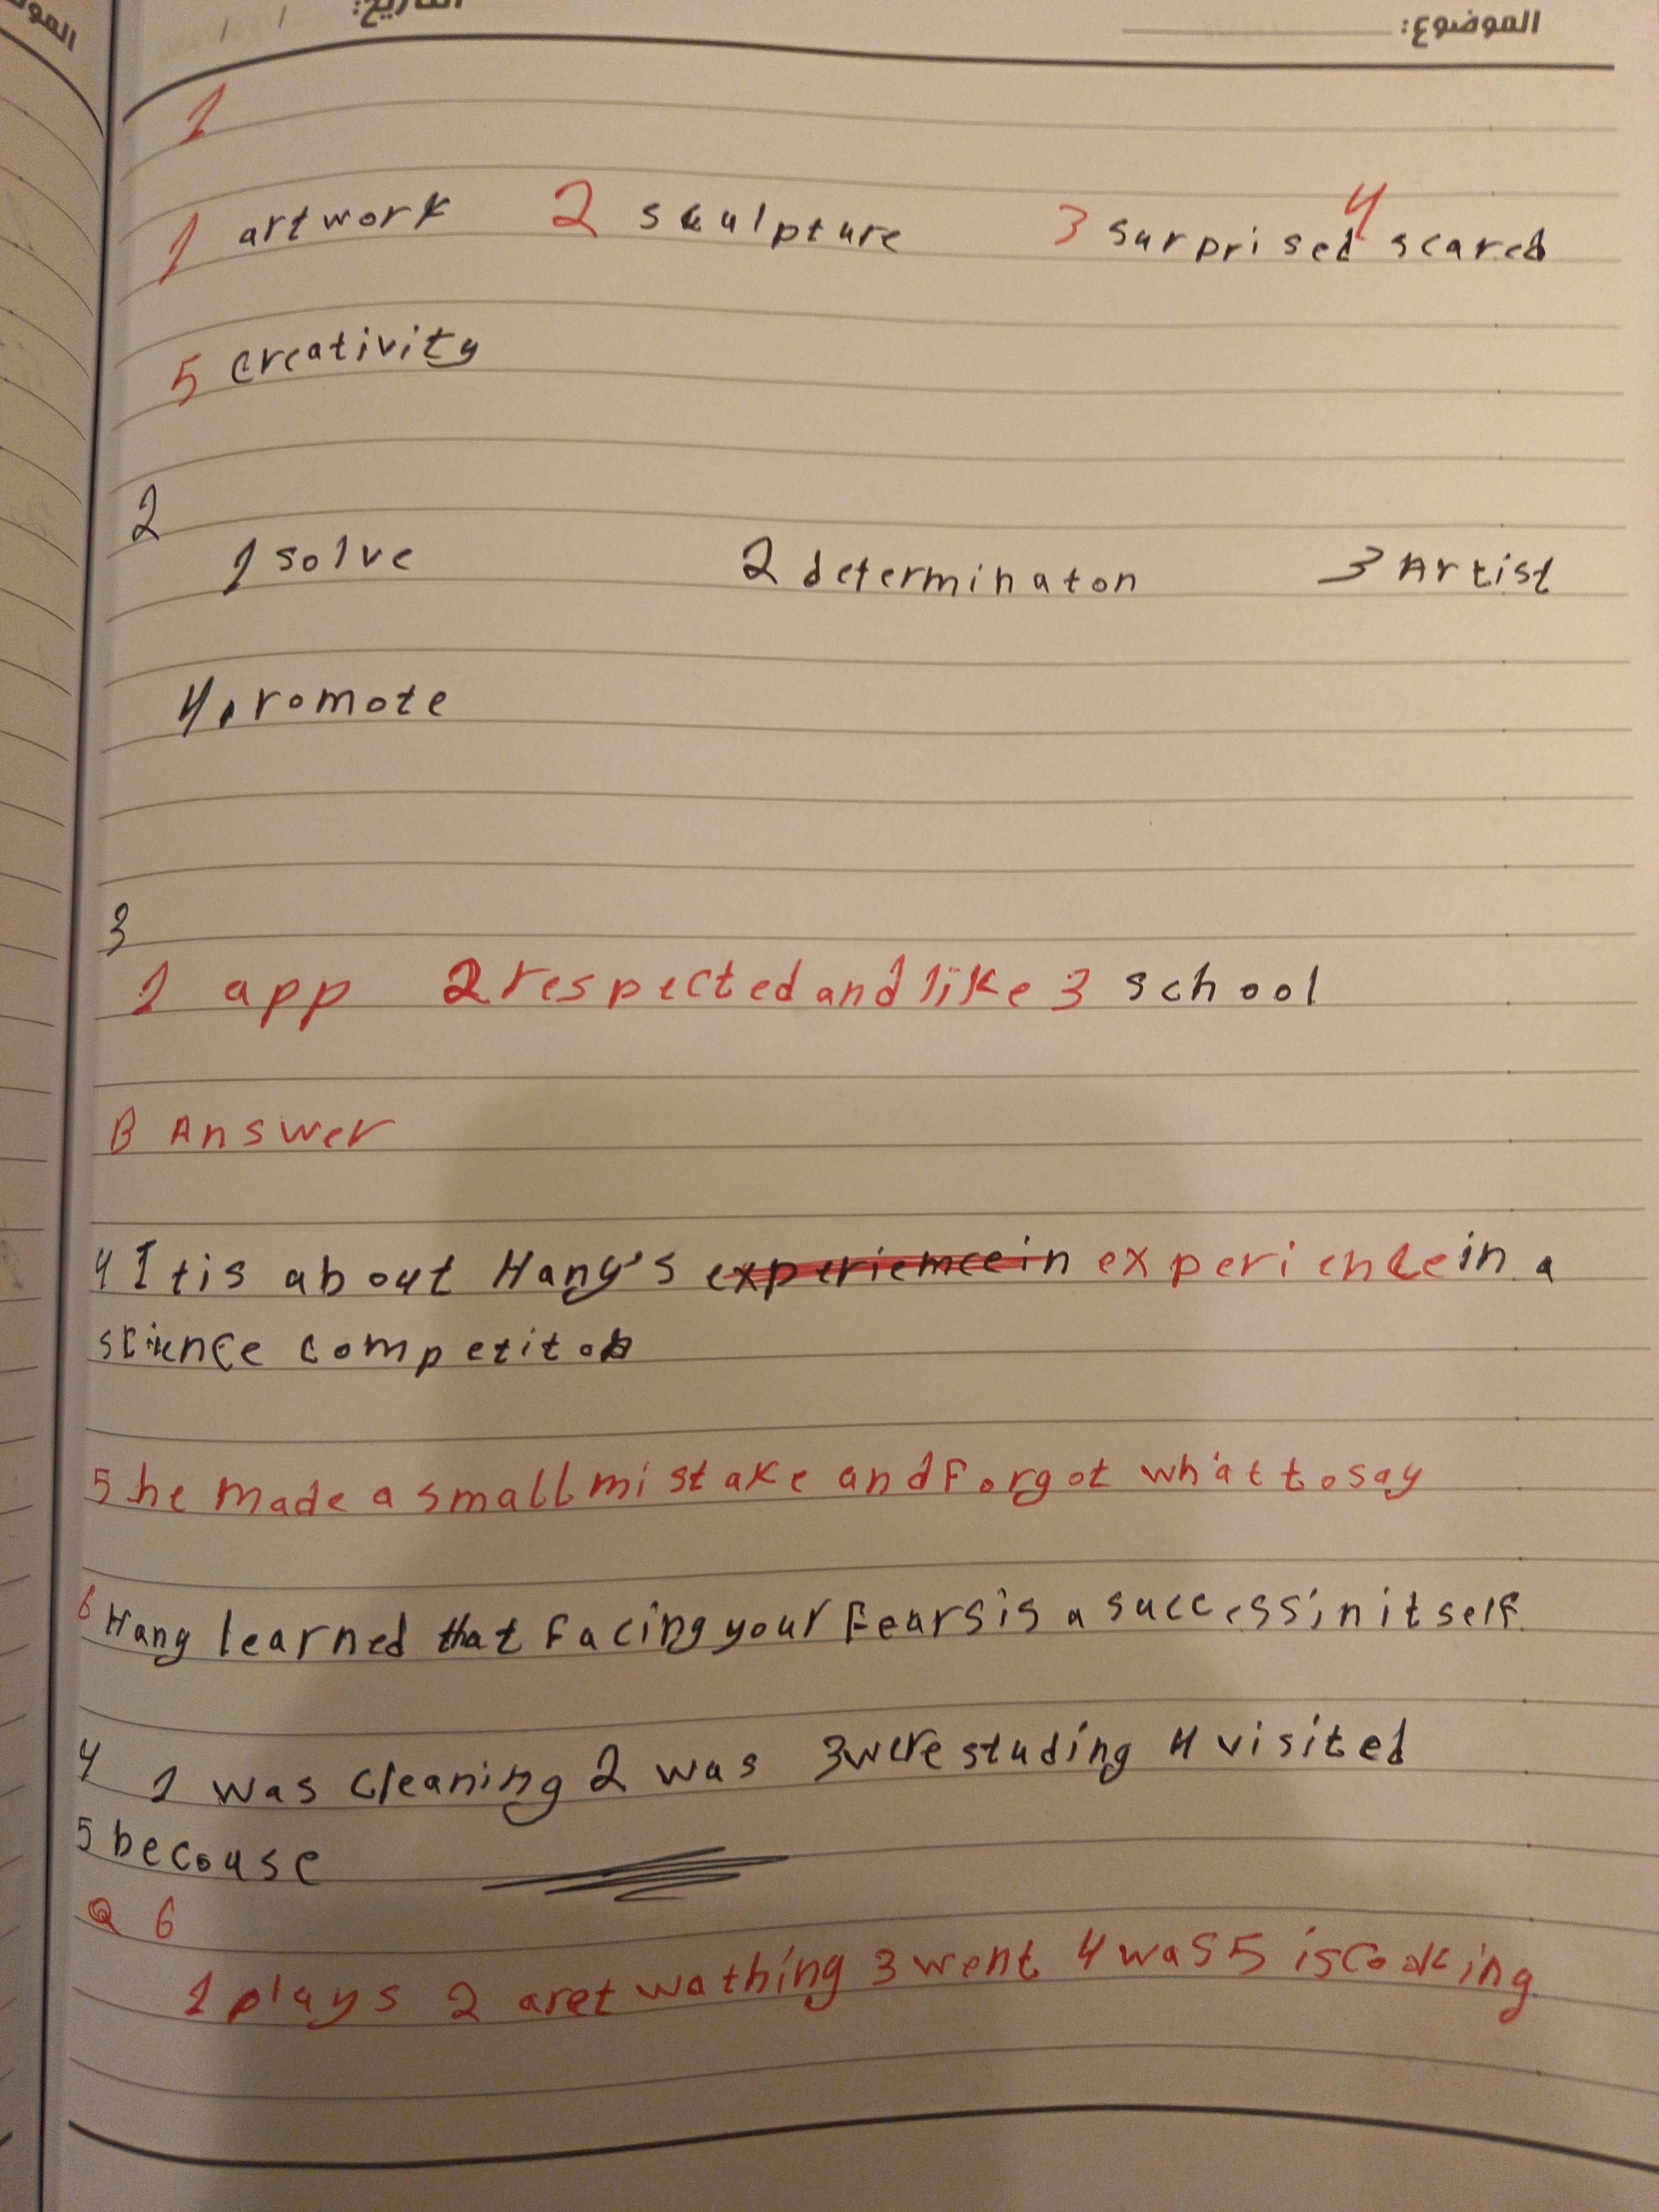 الموضوع:
التاريخ: / /
المو
1
1 artwork 2 sculpture 3 surprised 4 scared
5 creativity
2
1 solve 2 determinaton 3 Artist
4 promote
3
1 app 2 respected and like 3 school
B Answer
4 It is about Hany's experiemce in experience in a
science competiton
5 he made a small mistake and forgot what to say
6 Hany learned that facing your fears is a success in itself.
4 1 was cleaning 2 was 3 were studing 4 visited
5 becouse
Q 6
1 plays 2 aret wathing 3 went 4 was 5 is cooking